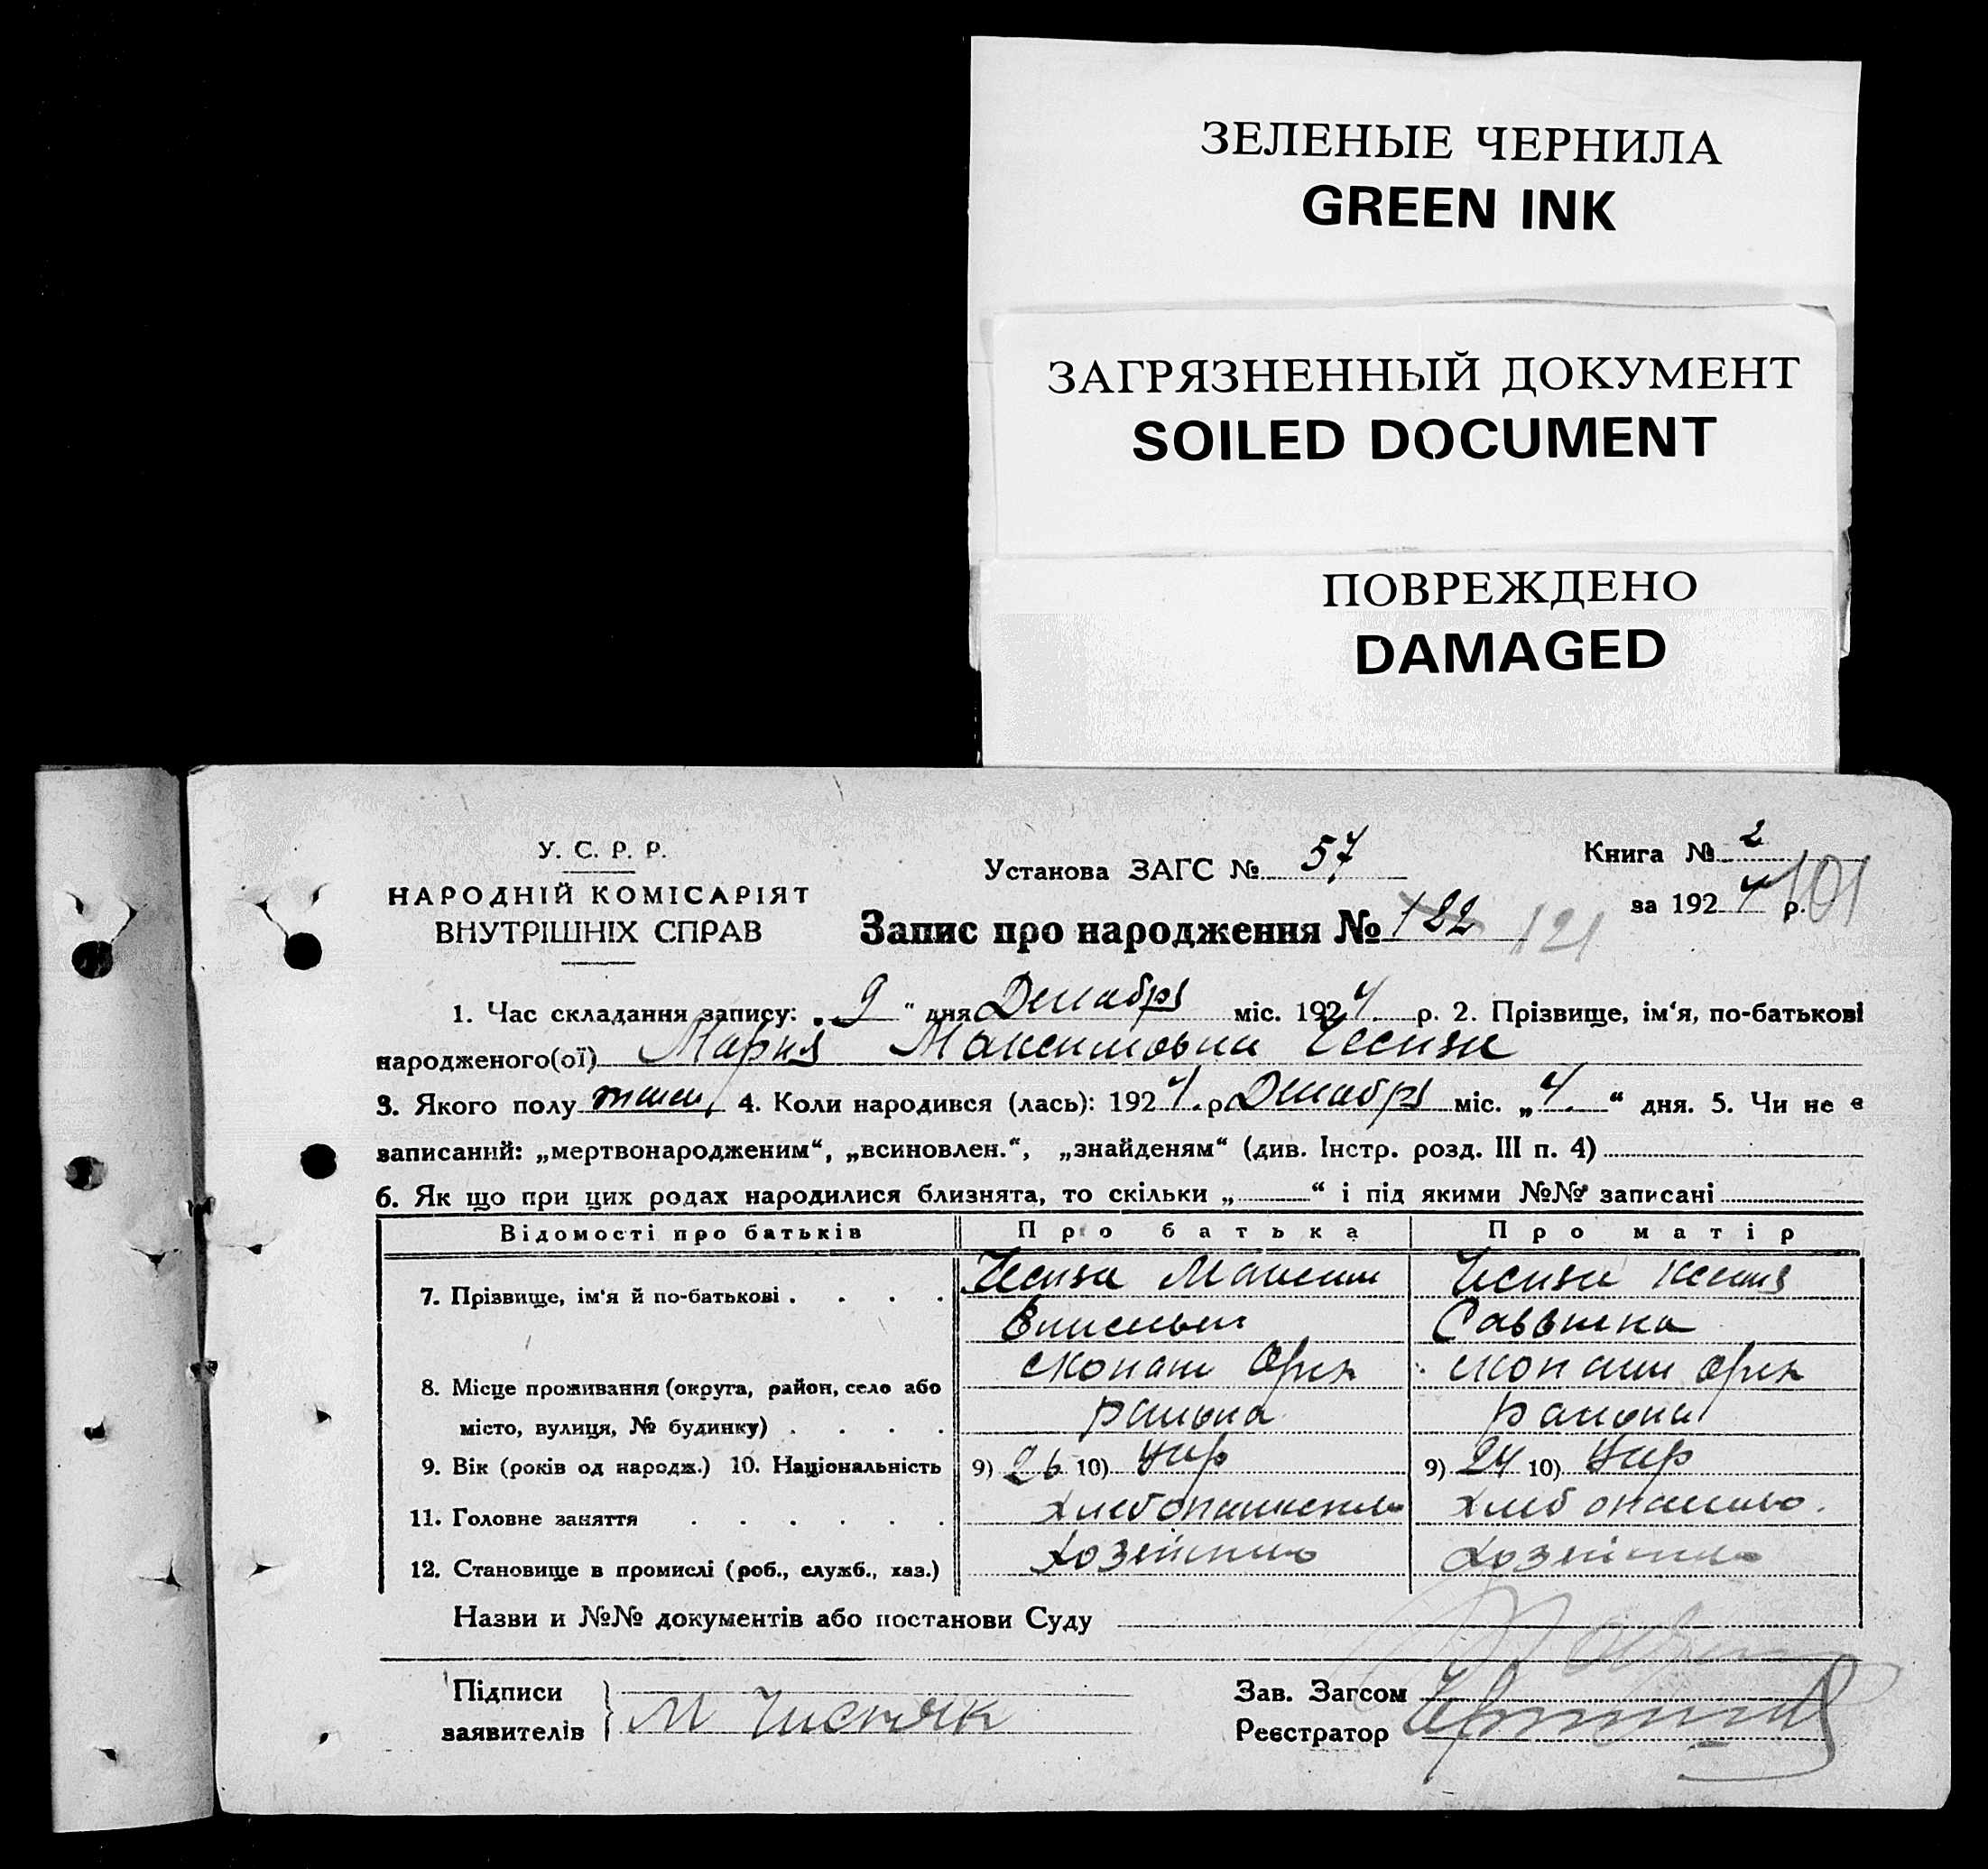 ЗЕЛЕНЫЕ ЧЕРНИЛА
GREEN INK
ЗАГРЯЗНЕННЫЙ ДОКУМЕНТ
SOILED DOCUMENT
ПОВРЕЖДЕНО
DAMAGED
У. С. Р. Р.
НАРОДНІЙ КОМІСАРІЯТ
ВНУТРІШНІХ СПРАВ
Установа ЗАГС № 57
Книга № 2
за 1924 р. 101
Запис про народження № 122 121
1. Час складання запису: „ 9 “ дня Декабря міс. 1924 р. 2. Прізвище, ім'я, по-батькові
народженого(ої) Мария Максимовна
3. Якого полу женск 4. Коли народився (лась): 1924 р. Декабря міс. „ 4 “ дня. 5. Чи не є
записаний: „мертвонародженим“, „всиновлен.“, „знайденям“ (див. Інстр. розд. III п. 4)
6. Як що при цих родах народилися близнята, то скільки „ “ і під якими №№ записані
Відомості про батьків Про батька Про матір
7. Прізвище, ім'я й по-батькові . . . . Максим
Саввишна
8. Місце проживання (округа, район, село або Орех Орех
місто, вулиця, № будинку) . . . . района района
9. Вік (років од народж.) 10. Національність 9) 26 10) Укр 9) 24 10) Укр
11. Головне заняття . . . . . . хлебопашество хлебопашество.
12. Становище в промислі (роб., служб., хаз.)
Назви и №№ документів або постанови Суду
Підписи
заявителів М Чистяк
Зав. Загсом
Реєстратор